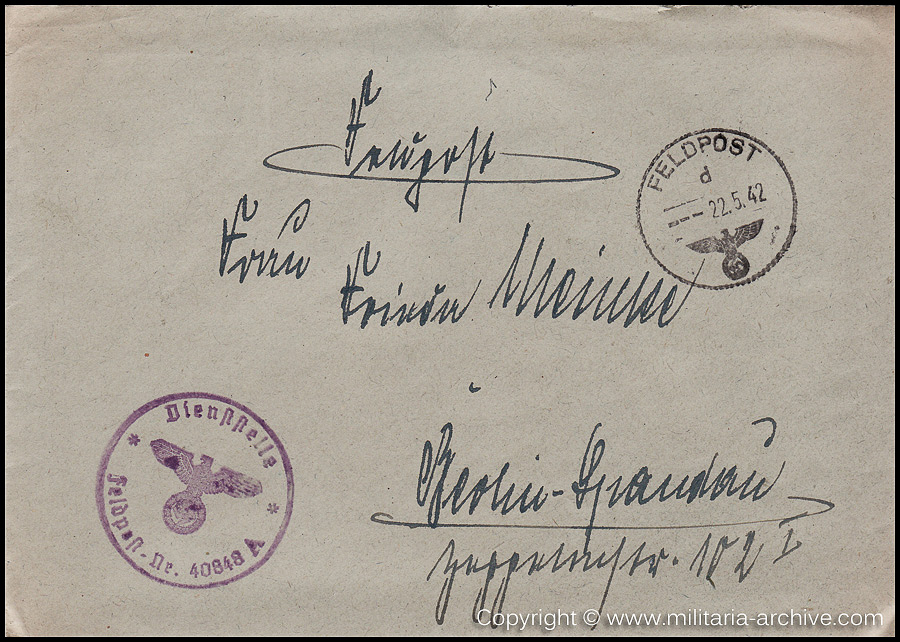 Feldpost
FELDPOST
d
22.5.42
Frau
Frieda Meinke
Dienststelle
Feldpost-Nr. 40848 A
Berlin-Spandau
Zeppelinstr. 102 I
Copyright © www.militaria-archive.com